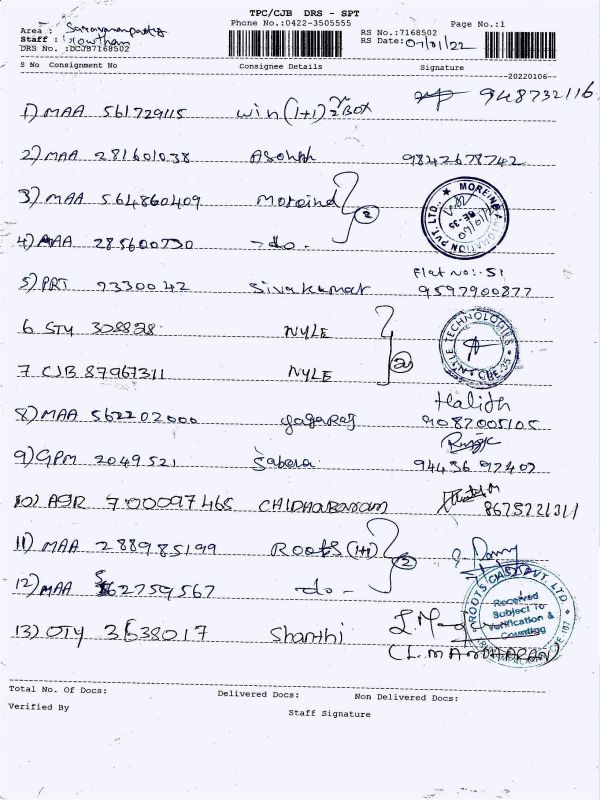 TPC/CJB DRS - SPT
Phone No.:0422-3505555
Page No.:1
Area :
Staff : Gowtham
DRS No. :DCJB7168502
RS No.:7168502
RS Date:07/01/22
S No Consignment No Consignee Details Signature
--20220106--
1) MAA 561729115 win (1+1) 2 Box 948732116
2) MAA 281601038 Ashokh 9842678742
3) MAA 564860409 Moreind
2
4) MAA 285600730 - do -
MOREIND AUTOMATION PVT. LTD.,
Flat No:- S1
5) PRT 9330042 Sivakumar 9597900877
6 STY 308828 NYLE
2
7 CJB 87967311 NYLE
TECHNOLOGIES
Halith
8) MAA 562202000 yogaraj 9087005105
9) GPM 2049521 Sabera 94436 97407
10) AGR 700097465 CHIDHAMBARAM 8675221311
11) MAA 288985199 Roots (1+1)
2
12) MAA 562759567 - do -
ROOTS CAST PVT. LTD.
Received
Subject To
Verification &
Counting
13) OTY 3638017 Shanthi
(L.MANOHARAN)
Total No. Of Docs: Delivered Docs: Non Delivered Docs:
Verified By
Staff Signature